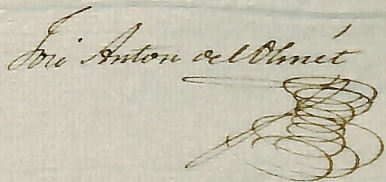 José Anton del Olmét